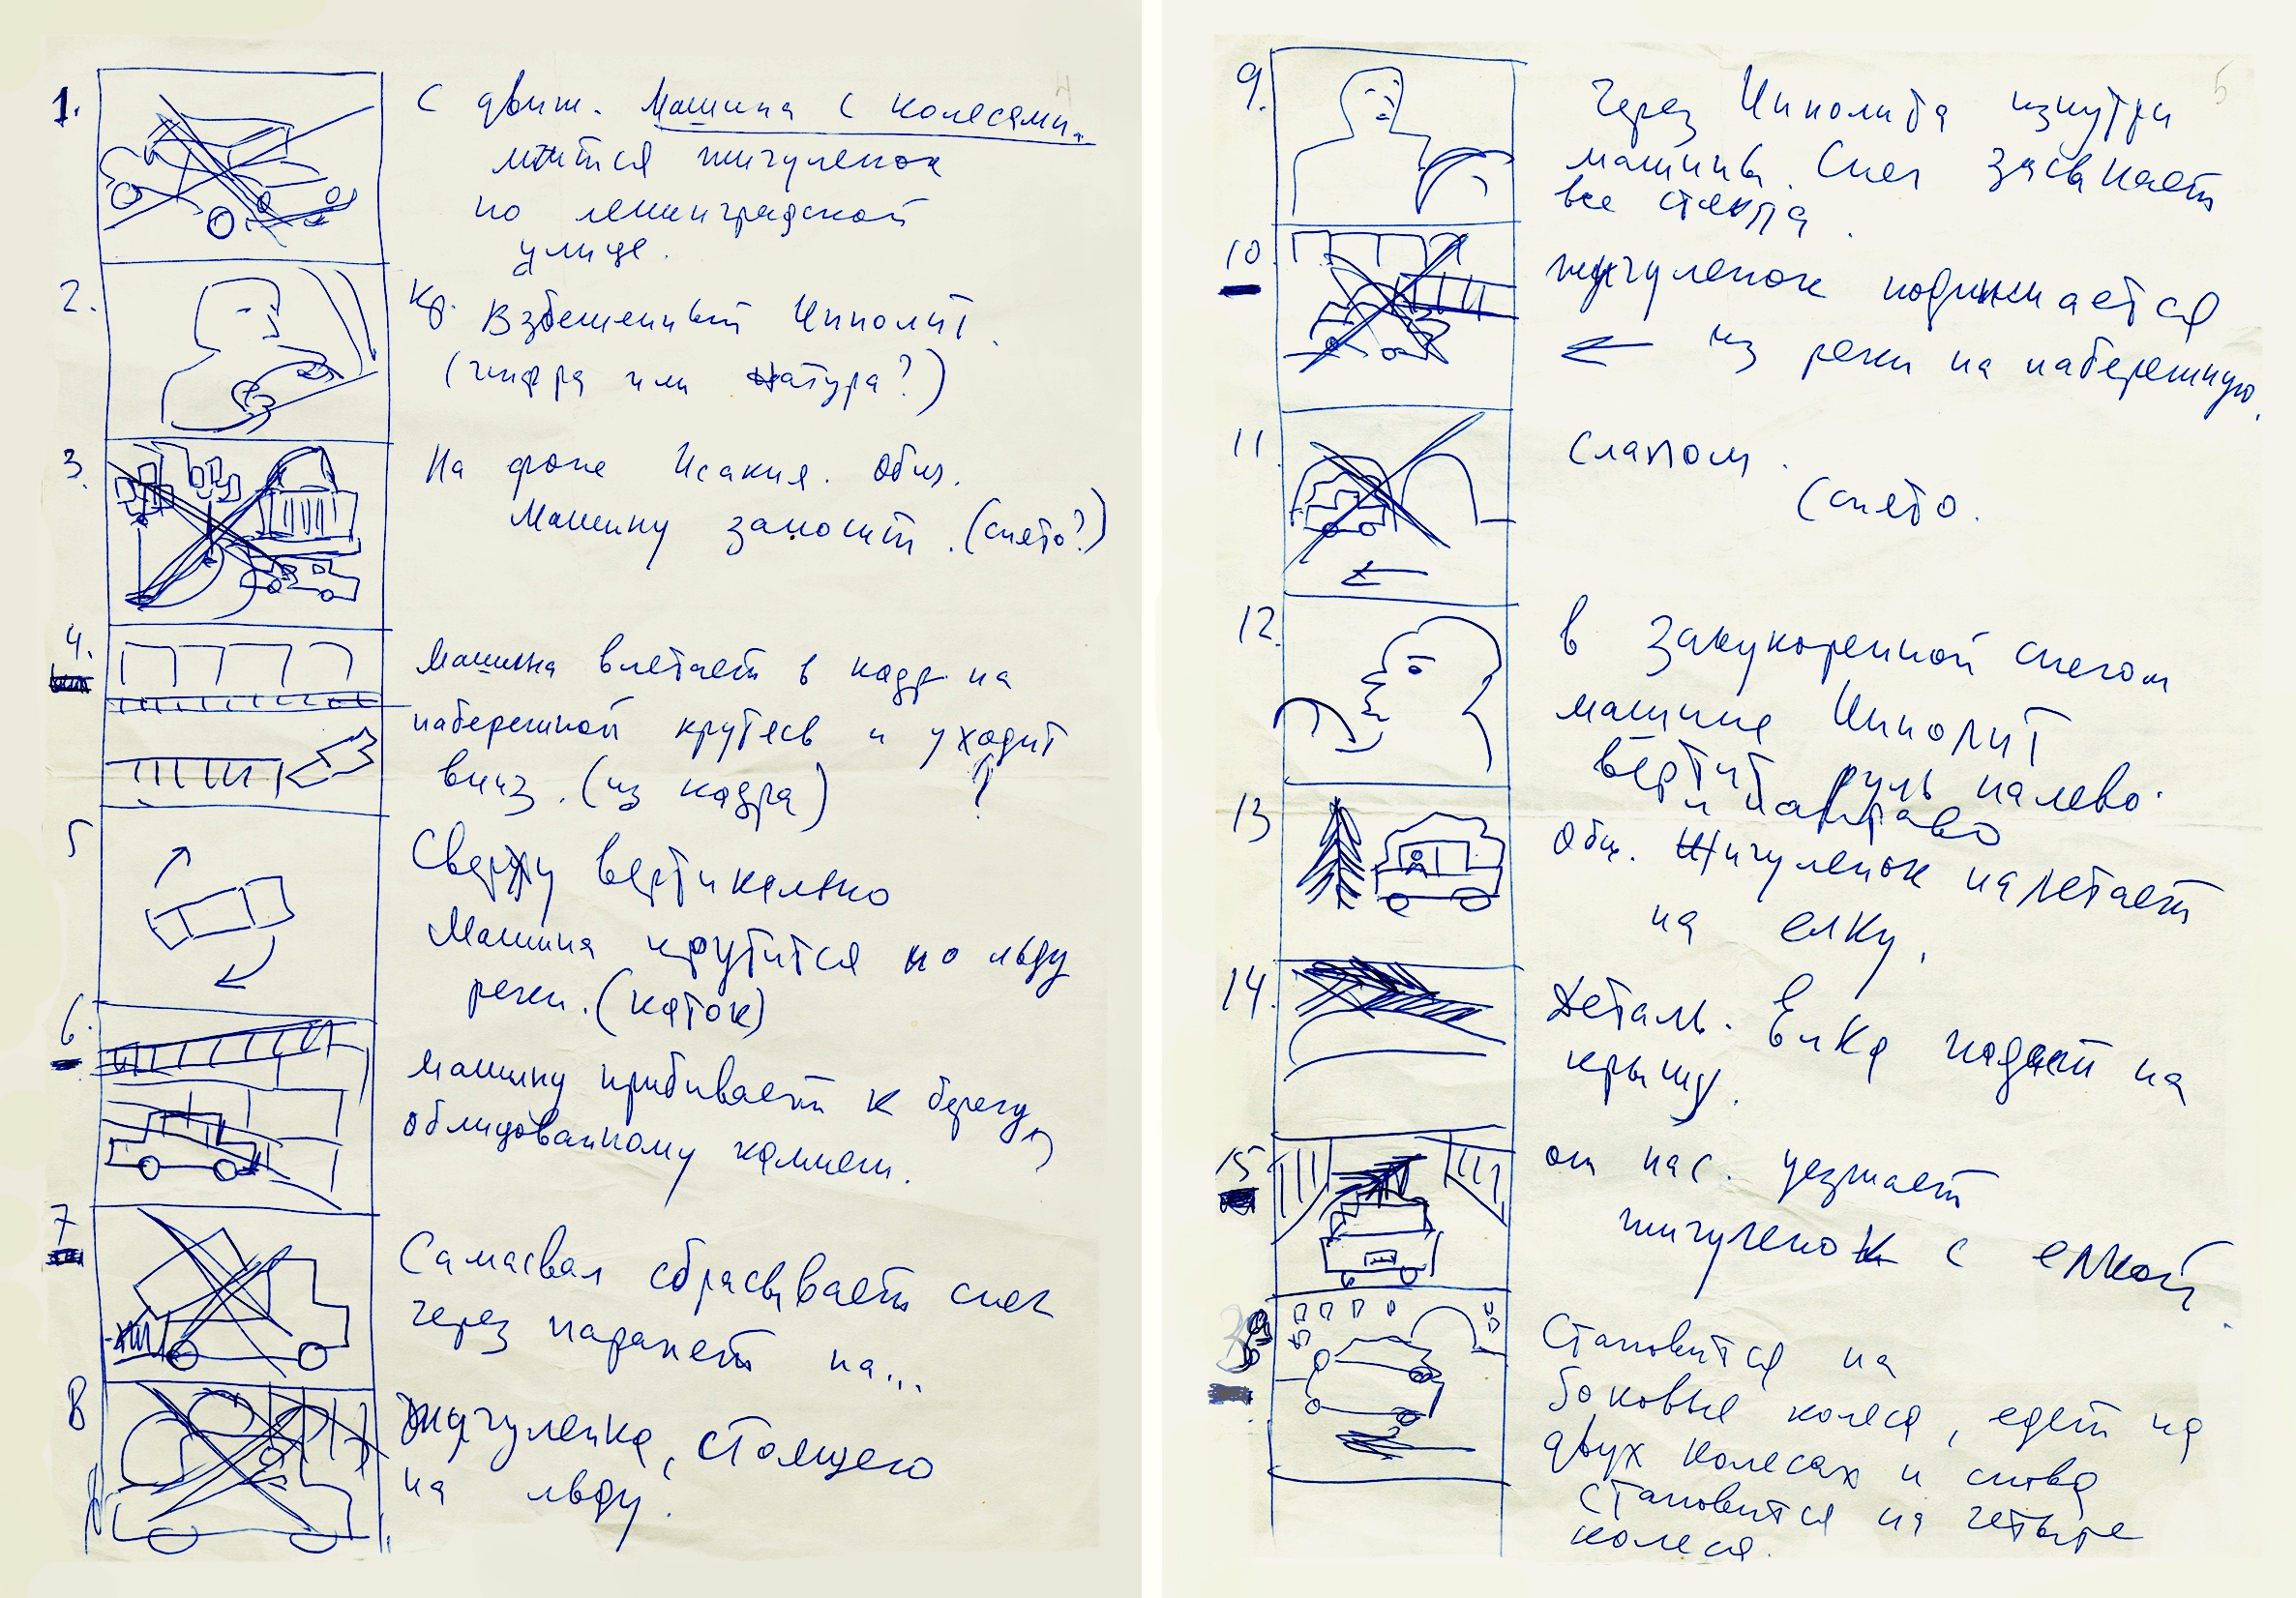 4
1.
С движ. Машина с колесами.
мчится жигуленок
по ленинградской
улице.
2.
Кр. Взбешенный Ипполит.
(цифра или натура?)
3.
На фоне Исакия. Общ.
Машину заносит. (снято?)
4.
Машина влетает в кадр на
набережной крутясь и уходит
вниз. (из кадра) ?
5
Сверху вертикально
Машина крутится по льду
реки. (каток)
6.
Машину прибивает к берегу,
облицованному камнем.
7
Самасвал сбрасывает снег
через парапет на...
8
Жигуленка, стоящего
на льду.
5
9.
Через Ипполита изнутри
машины. Снег засыпает
все стекла.
10
жигуленок поднимается
из реки на набережную.
11.
Слапом.
(снято.
12.
В закупоренной снегом
машине Ипполит
вертит руль налево
и направо
13
Общ. Жигуленок налетает
на елку.
14.
Деталь. Елка падает на
крышу.
15
от нас. уезжает
жигуленок с елкой.
Становится на
боковые колеса, едет на
двух колесах и снова
становится на четыре
колеса.